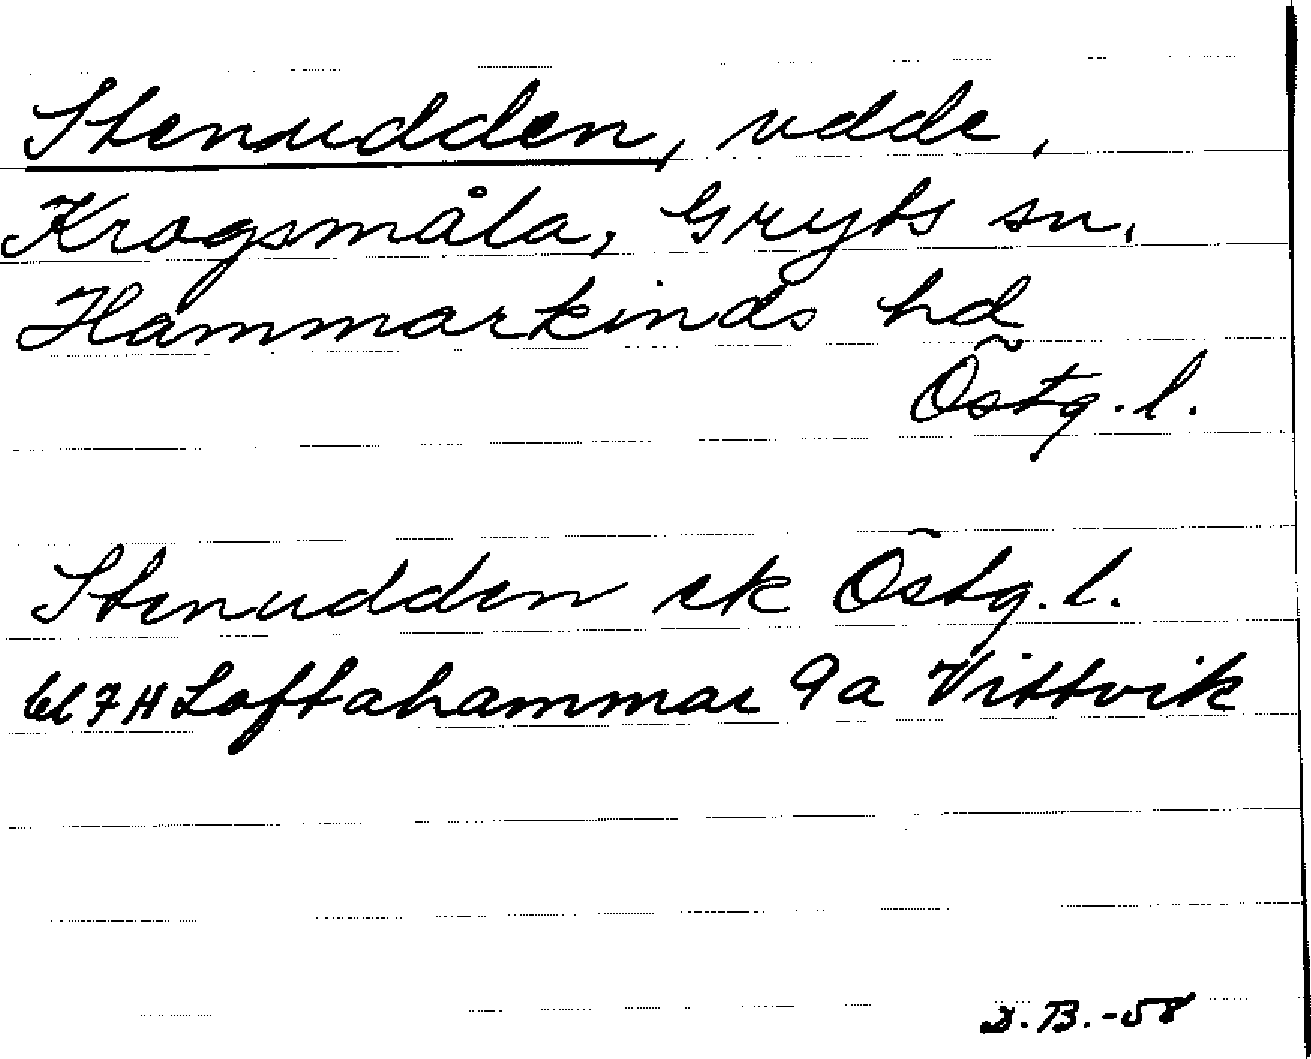 Stenudden, udde,
Krogsmåla, Gryts sn,
Hammarkinds hd
Östg. l.
Stenudden ek Östg. l.
bl 7H Loftahammar 9a Vittvik
D.B.-58